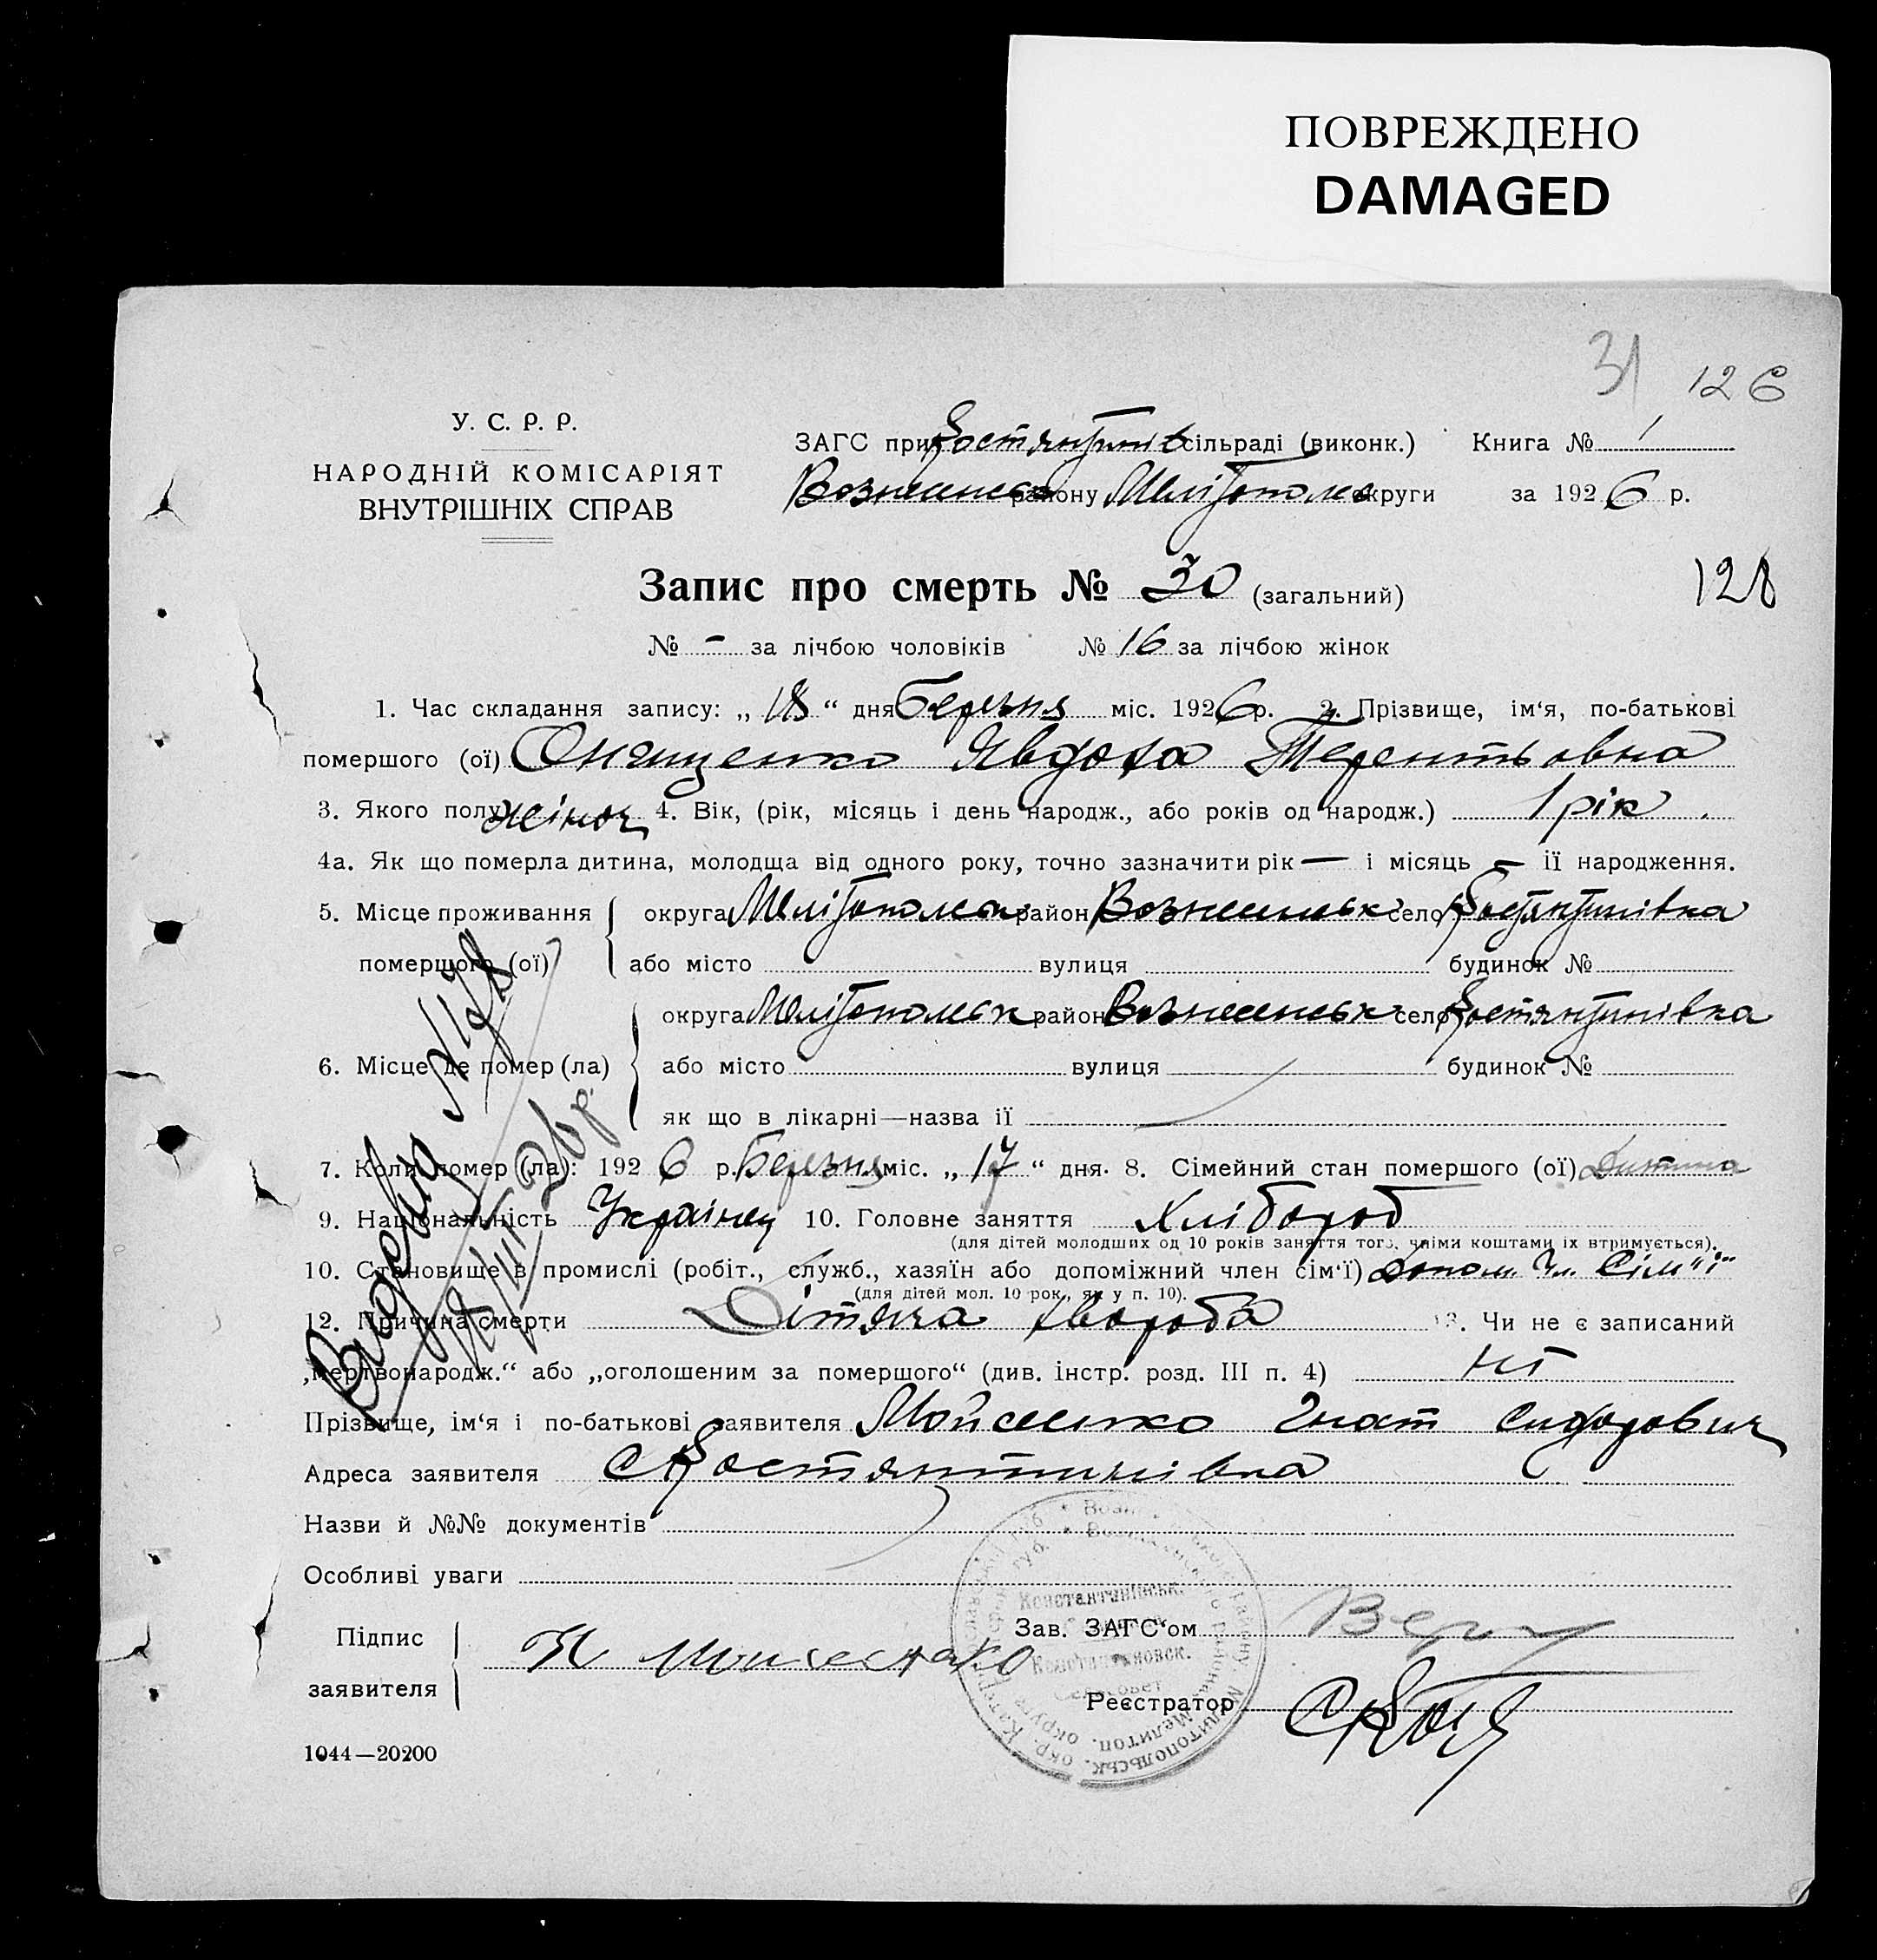 ПОВРЕЖДЕНО
DAMAGED
31 126
У. С. Р. Р.
НАРОДНІЙ КОМІСАРІЯТ
ВНУТРІШНІХ СПРАВ
ЗАГС при Костянтинів сільраді (виконк.) Книга № 1
Вознесенськ району Мелітопольс округи за 1926 р.
Запис про смерть № 30 (загальний)
128
№ – за лічбою чоловіків № 16 за лічбою жінок
1. Час складання запису: „18“ дня Березня міс. 1926 р. 2. Прізвище, ім'я, по-батькові
помершого (ої) Онищенко Явдоха Терентьовна
3. Якого полу жіноч 4. Вік, (рік, місяць і день народж., або років од народж.) 1 рік.
4а. Як що померла дитина, молодща від одного року, точно зазначити рік — і місяць — її народження.
5. Місце проживання помершого (ої) округа Мелітопольськ район Вознесенськ село Костянтинівка
або місто вулиця будинок №
6. Місце де помер (ла) округа Мелітопольськ район Вознесенськ село Костянтинівка
або місто вулиця будинок №
як що в лікарні—назва її
7. Коли помер (ла): 1926 р. Березня міс. „17“ дня. 8. Сімейний стан помершого (ої) Дитина
9. Національність Украінец 10. Головне заняття Хлібороб
(для дітей молодших од 10 років заняття того, чиїми коштами їх втримується).
10. Становище в промислі (робіт., служб., хазяїн або допоміжний член сім'ї) Допом. Чл. Сім'ї
(для дітей мол. 10 рок., як у п. 10).
12. Причина смерти Дітяча хвороба 13. Чи не є записаний
„мертвонародж.“ або „оголошеним за помершого“ (див. інстр. розд. III п. 4) ні
Прізвище, ім'я і по-батькові заявителя Мойсеенко Гнат Сидорович
Адреса заявителя с Костянтинівка
Назви й №№ документів
Особливі уваги
Підпис
заявителя
Мойсеенко
Зав. ЗАГС'ом
Реєстратор
1044—20200
Видано № 28
18/III 26 р.
Константинівськ.
Константиновск.
Сельсовет